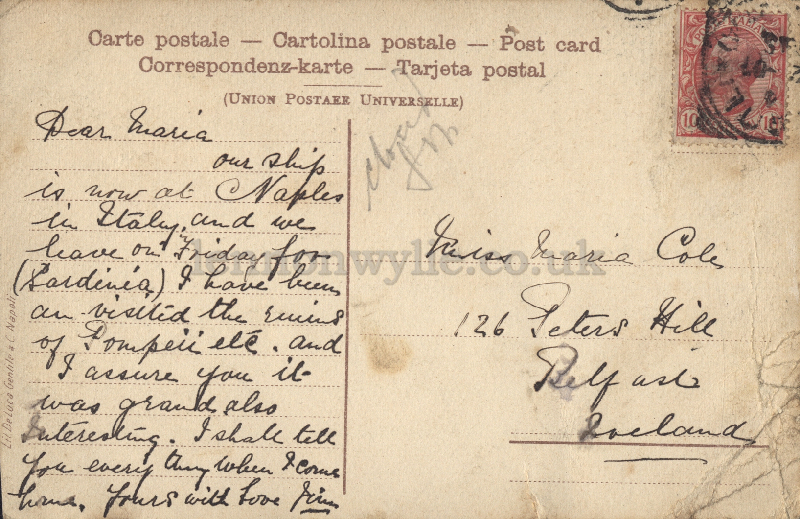 Carte postale — Cartolina postale — Post card
Correspondenz-karte — Tarjeta postal
(UNION POSTAEE UNIVERSELLE)
Dear Maria
our ship
is now at Naples
in Italy, and we
leave on Friday for
(Sardinia) I have been
an visited the ruins
of Pompeii etc. and
I assure you it
was grand also
Interesting. I shall tell
you every thing when I come
home. Yours with Love Jim
Miss Maria Cole
126 Peters Hill
Belfast
Ireland
Lit. De Luca Gentile & C. Napoli
lennonwylie.co.uk
10